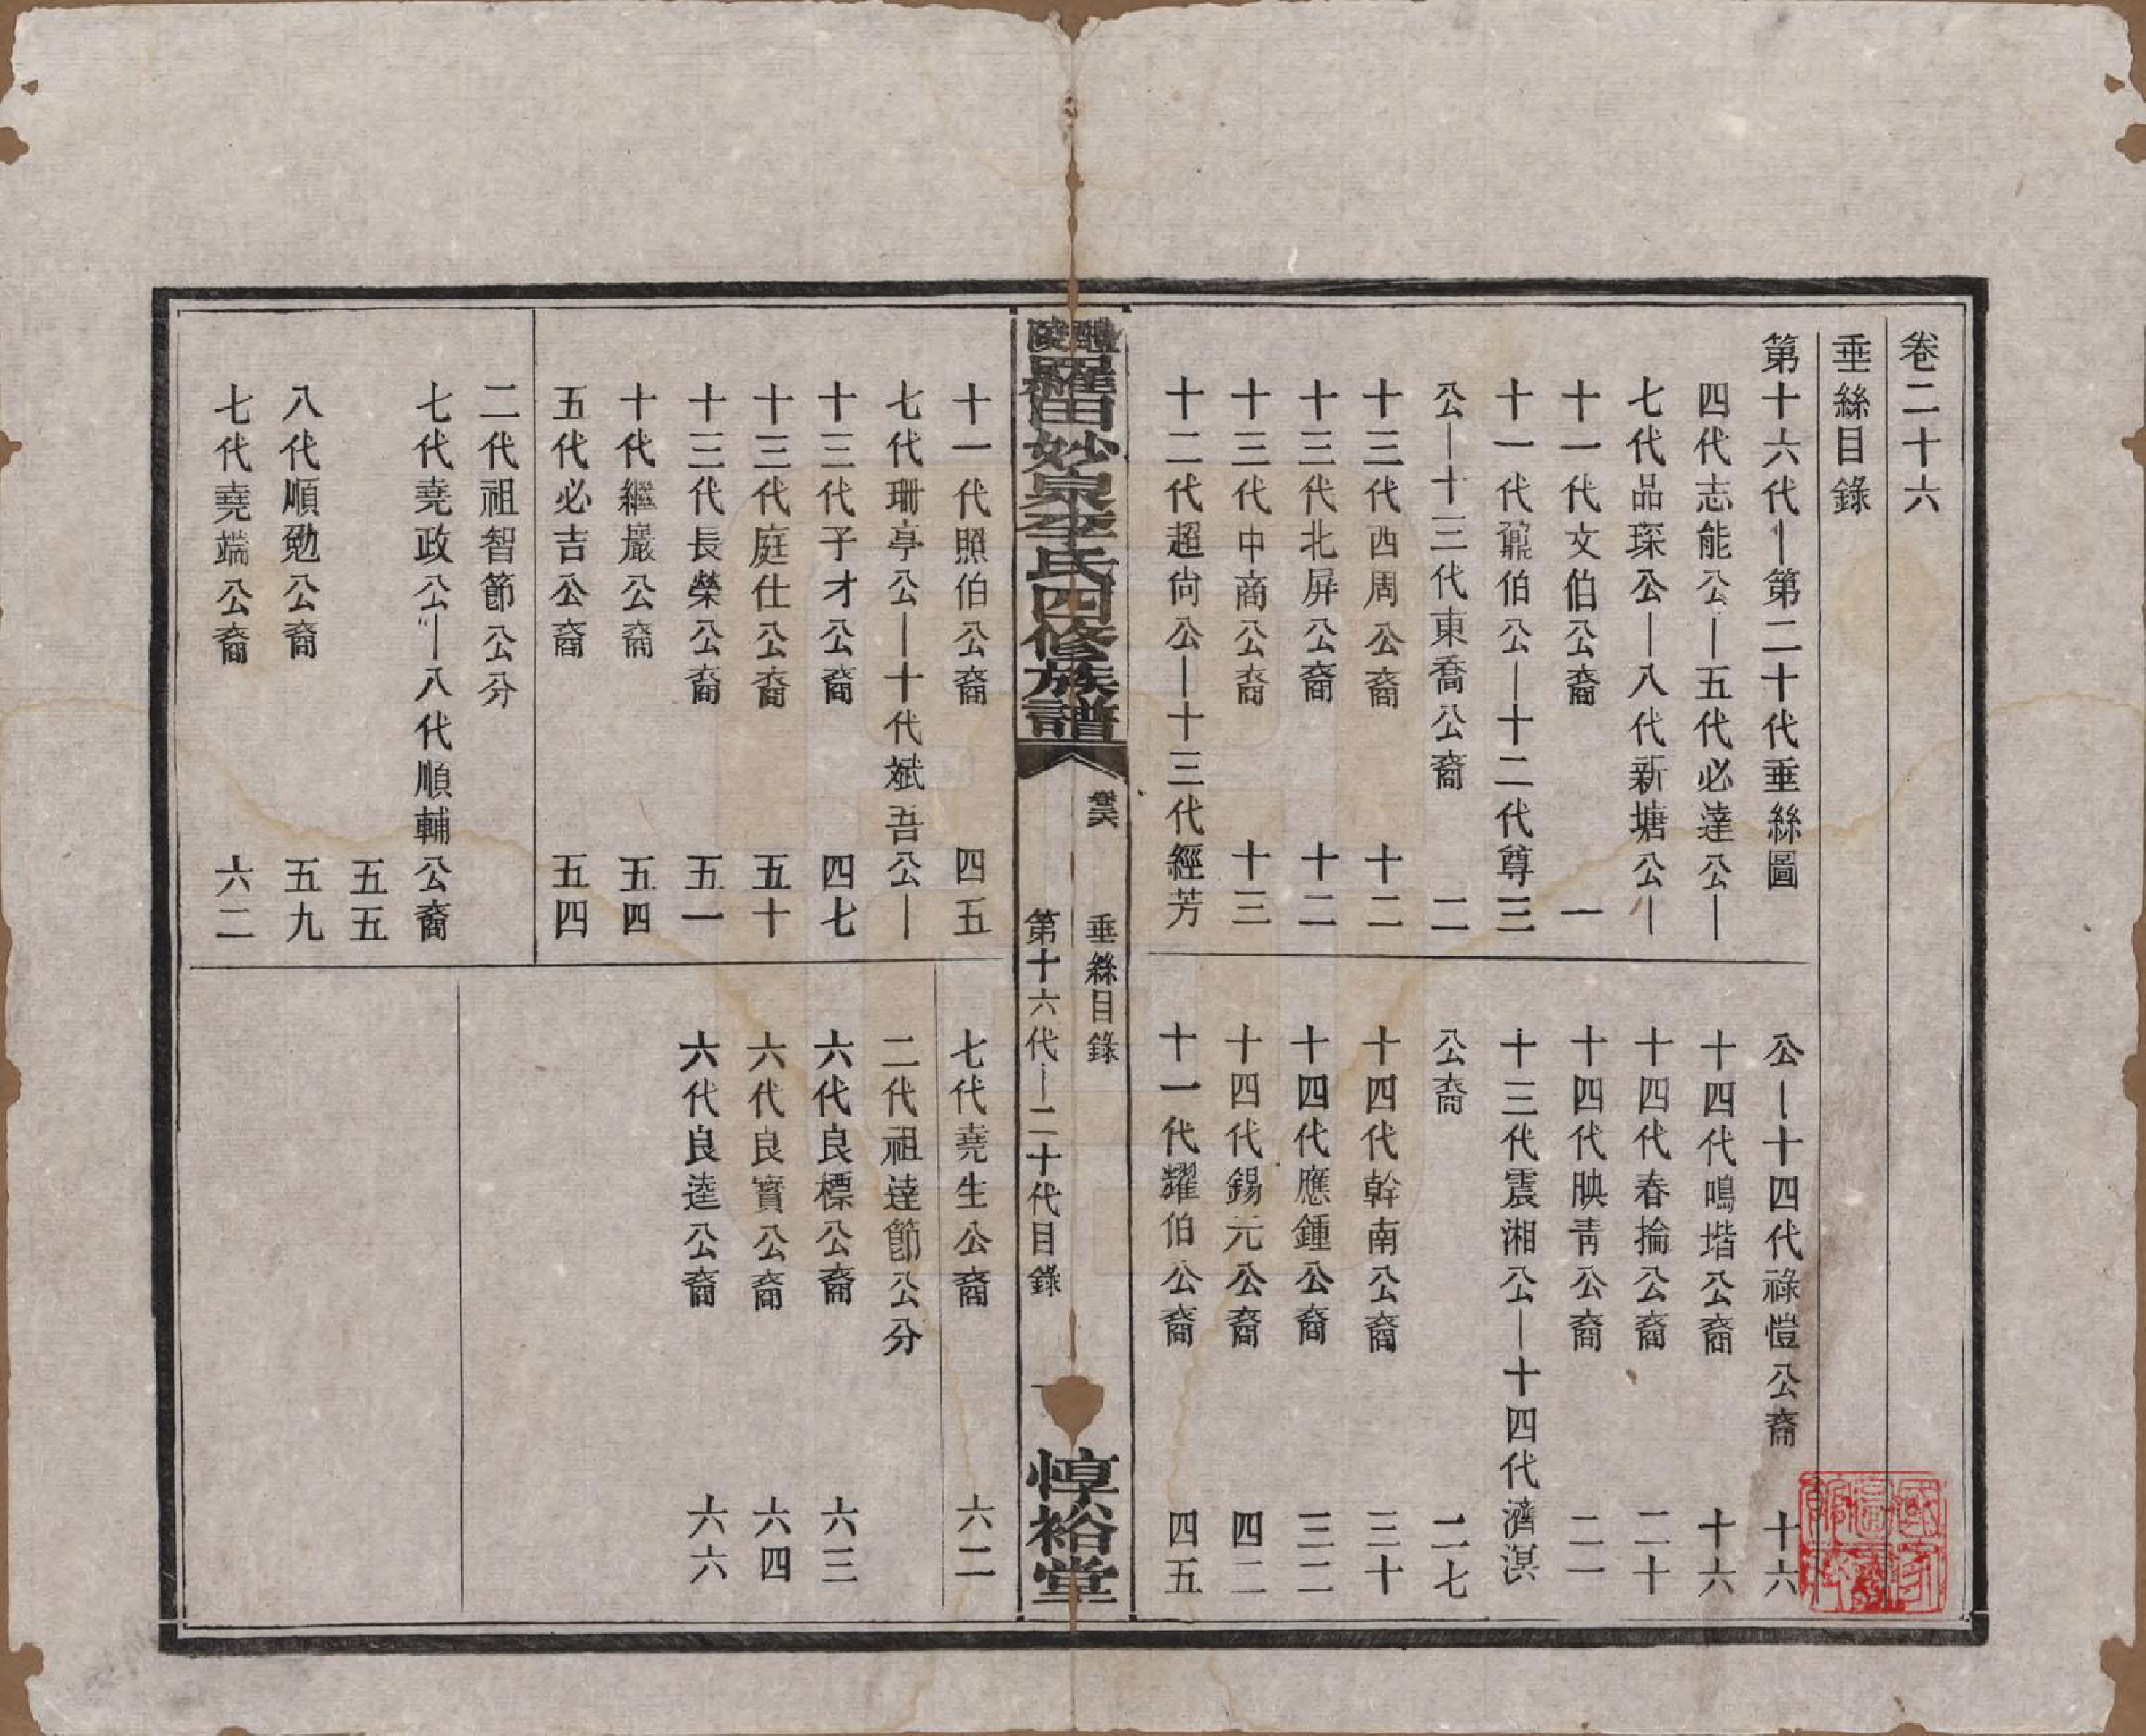 卷二十六
垂絲目錄
第十六代—第二十代垂絲圖
四代志能公—五代必達公—
七代品琛公—八代新塘公—
十一代文伯公裔 一
十一代鼐伯公—十二代尊三
公—十三代東喬公裔 二
十三代西周公裔 十二
十三代北屏公裔 十二
十三代中商公裔 十三
十二代超尙公—十三代經芳
公—十四代祿愷公裔 十六
十四代鳴堦公裔 十六
十四代春掄公裔 二十
十四代映靑公裔 二一
十三代震湘公—十四代濟溟
公裔 二七
十四代幹南公裔 三十
十四代應鍾公裔 三二
十四代錫元公裔 四二
十一代耀伯公裔 四五
醴陵羅田妙泉李氏四修族譜
卷廿六 垂絲目錄
第十六代—二十代目錄 一
惇裕堂
十一代照伯公裔 四五
七代珊亭公—十代斌吾公—
十三代子才公裔 四七
十三代庭仕公裔 五十
十三代長榮公裔 五一
十代繼嚴公裔 五四
五代必吉公裔 五四
二代祖智節公分
七代堯政公—八代順輔公裔
五五
八代順勉公裔 五九
七代堯端公裔 六二
七代堯生公裔 六二
二代祖達節公分
六代良標公裔 六三
六代良寶公裔 六四
六代良逵公裔 六六